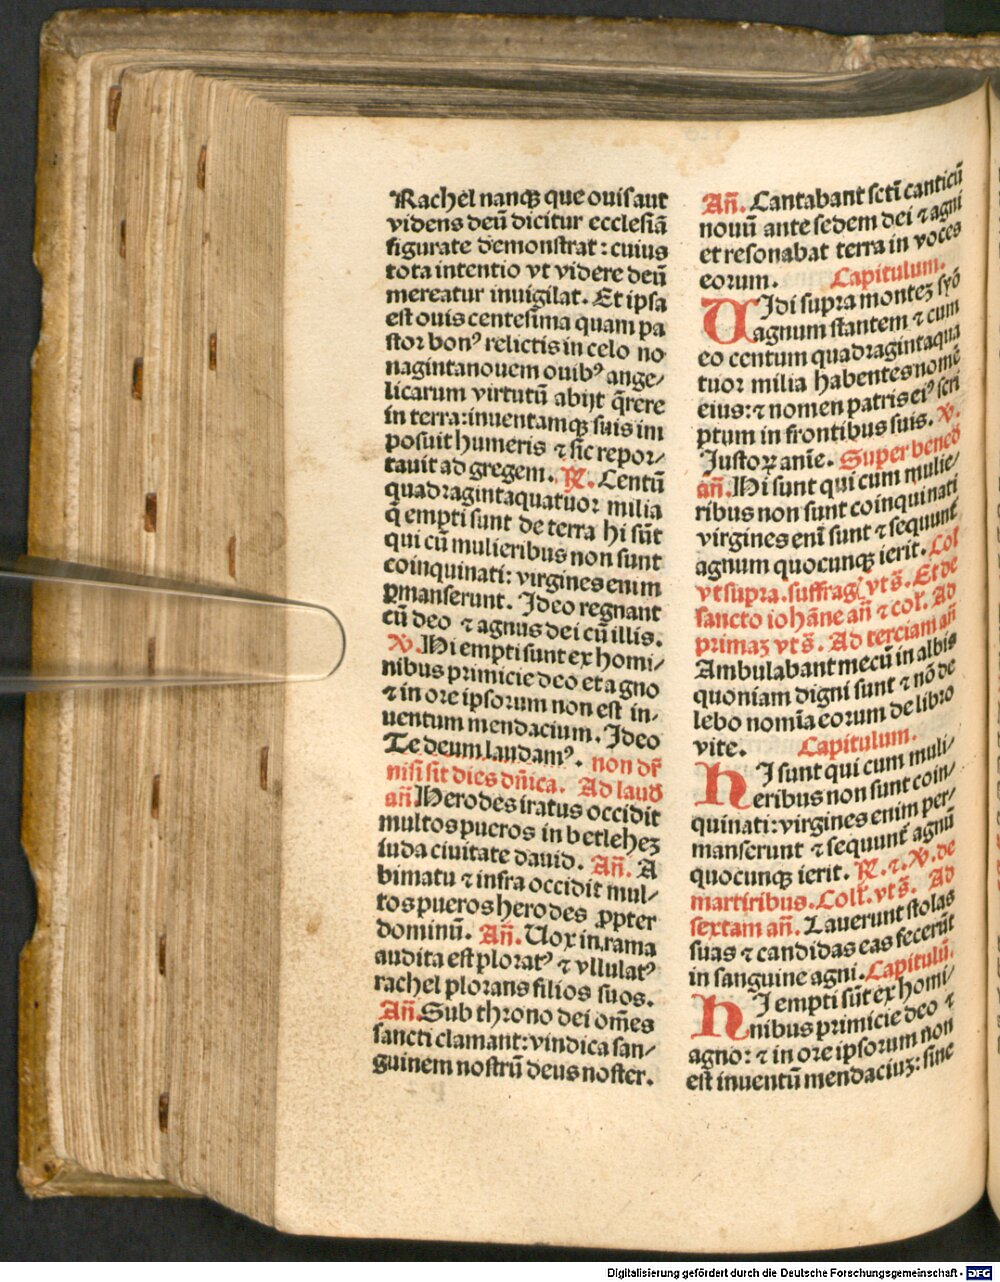 Rachel nanqꝫ que ouis aut
videns deū dicitur ecclesiā
figurate demonstrat: cuius
tota intentio vt videre deū
mereatur inuigilat. Et ipsa
est ouis centesima quam pa
stor bonꝰ relictis in celo no
nagintanouem ouibꝰ ange⸗
licarum virtutū abijt q̄rere
in terra: inuentamqꝫ suis im
posuit humeris ⁊ sic repor⸗
tauit ad gregem. ℟. Centū
quadragintaquatuor milia
q̄ empti sunt de terra hi sūt
qui cū mulieribus non sunt
coinquinati: virgines enim
ꝑmanserunt. Ideo regnant
cū deo ⁊ agnus dei cū illis.
℣. Hi empti sunt ex homi⸗
nibus primicie deo et agno
⁊ in ore ipsorum non est in⸗
uentum mendacium. Ideo
Te deum laudamꝰ. non dr̄
nisi sit dies dn̄ica. Ad laud
an̄ Herodes iratus occidit
multos pueros in betleheꝫ
iuda ciuitate dauid. An̄. A
bimatu ⁊ infra occidit mul⸗
tos pueros herodes ꝓpter
dominū. An̄. Uox in rama
audita est ploratꝰ ⁊ vllulatꝰ
rachel plorans filios suos.
An̄. Sub throno dei om̄es
sancti clamant: vindica san⸗
guinem nostrū deus noster.
An̄. Cantabant sctī canticū
nouū ante sedem dei ⁊ agni
et resonabat terra in voces
eorum. Capitulum.
UIdi supra monteꝫ syō
agnum stantem ⁊ cum
eo centum quadragintaqua
tuor milia habentes nomē
eius: ⁊ nomen patris eiꝰ scri
ptum in frontibus suis. ℣.
Iustoꝝ anīe. Super bened̄
an̄. Hi sunt qui cum mulie⸗
ribus non sunt coinquinati
virgines enī sunt ⁊ sequunt̄
agnum quocunqꝫ ierit. Col
vt supra. suffrag vt s̄. Et de
sancto iohāne an̄ ⁊ col̄. Ad
primaꝫ vt s̄. Ad terciam an̄
Ambulabant mecū in albis
quoniam digni sunt ⁊ nō de
lebo nomīa eorum de libro
vite. Capitulum.
HI sunt qui cum muli⸗
eribus non sunt coin⸗
quinati: virgines enim per⸗
manserunt ⁊ sequunt̄ agnū
quocunqꝫ ierit. ℟. ⁊. ℣. de
martiribus. Coll̄. vt s̄. Ad
sextam an̄. Lauerunt stolas
suas ⁊ candidas eas fecerūt
in sanguine agni. Capitulū.
HI empti sūt ex homi⸗
nibus primicie deo ⁊
agno: ⁊ in ore ipsorum non
est inuentū mendaciuꝫ: sine
Digitalisierung gefördert durch die Deutsche Forschungsgemeinschaft - DFG